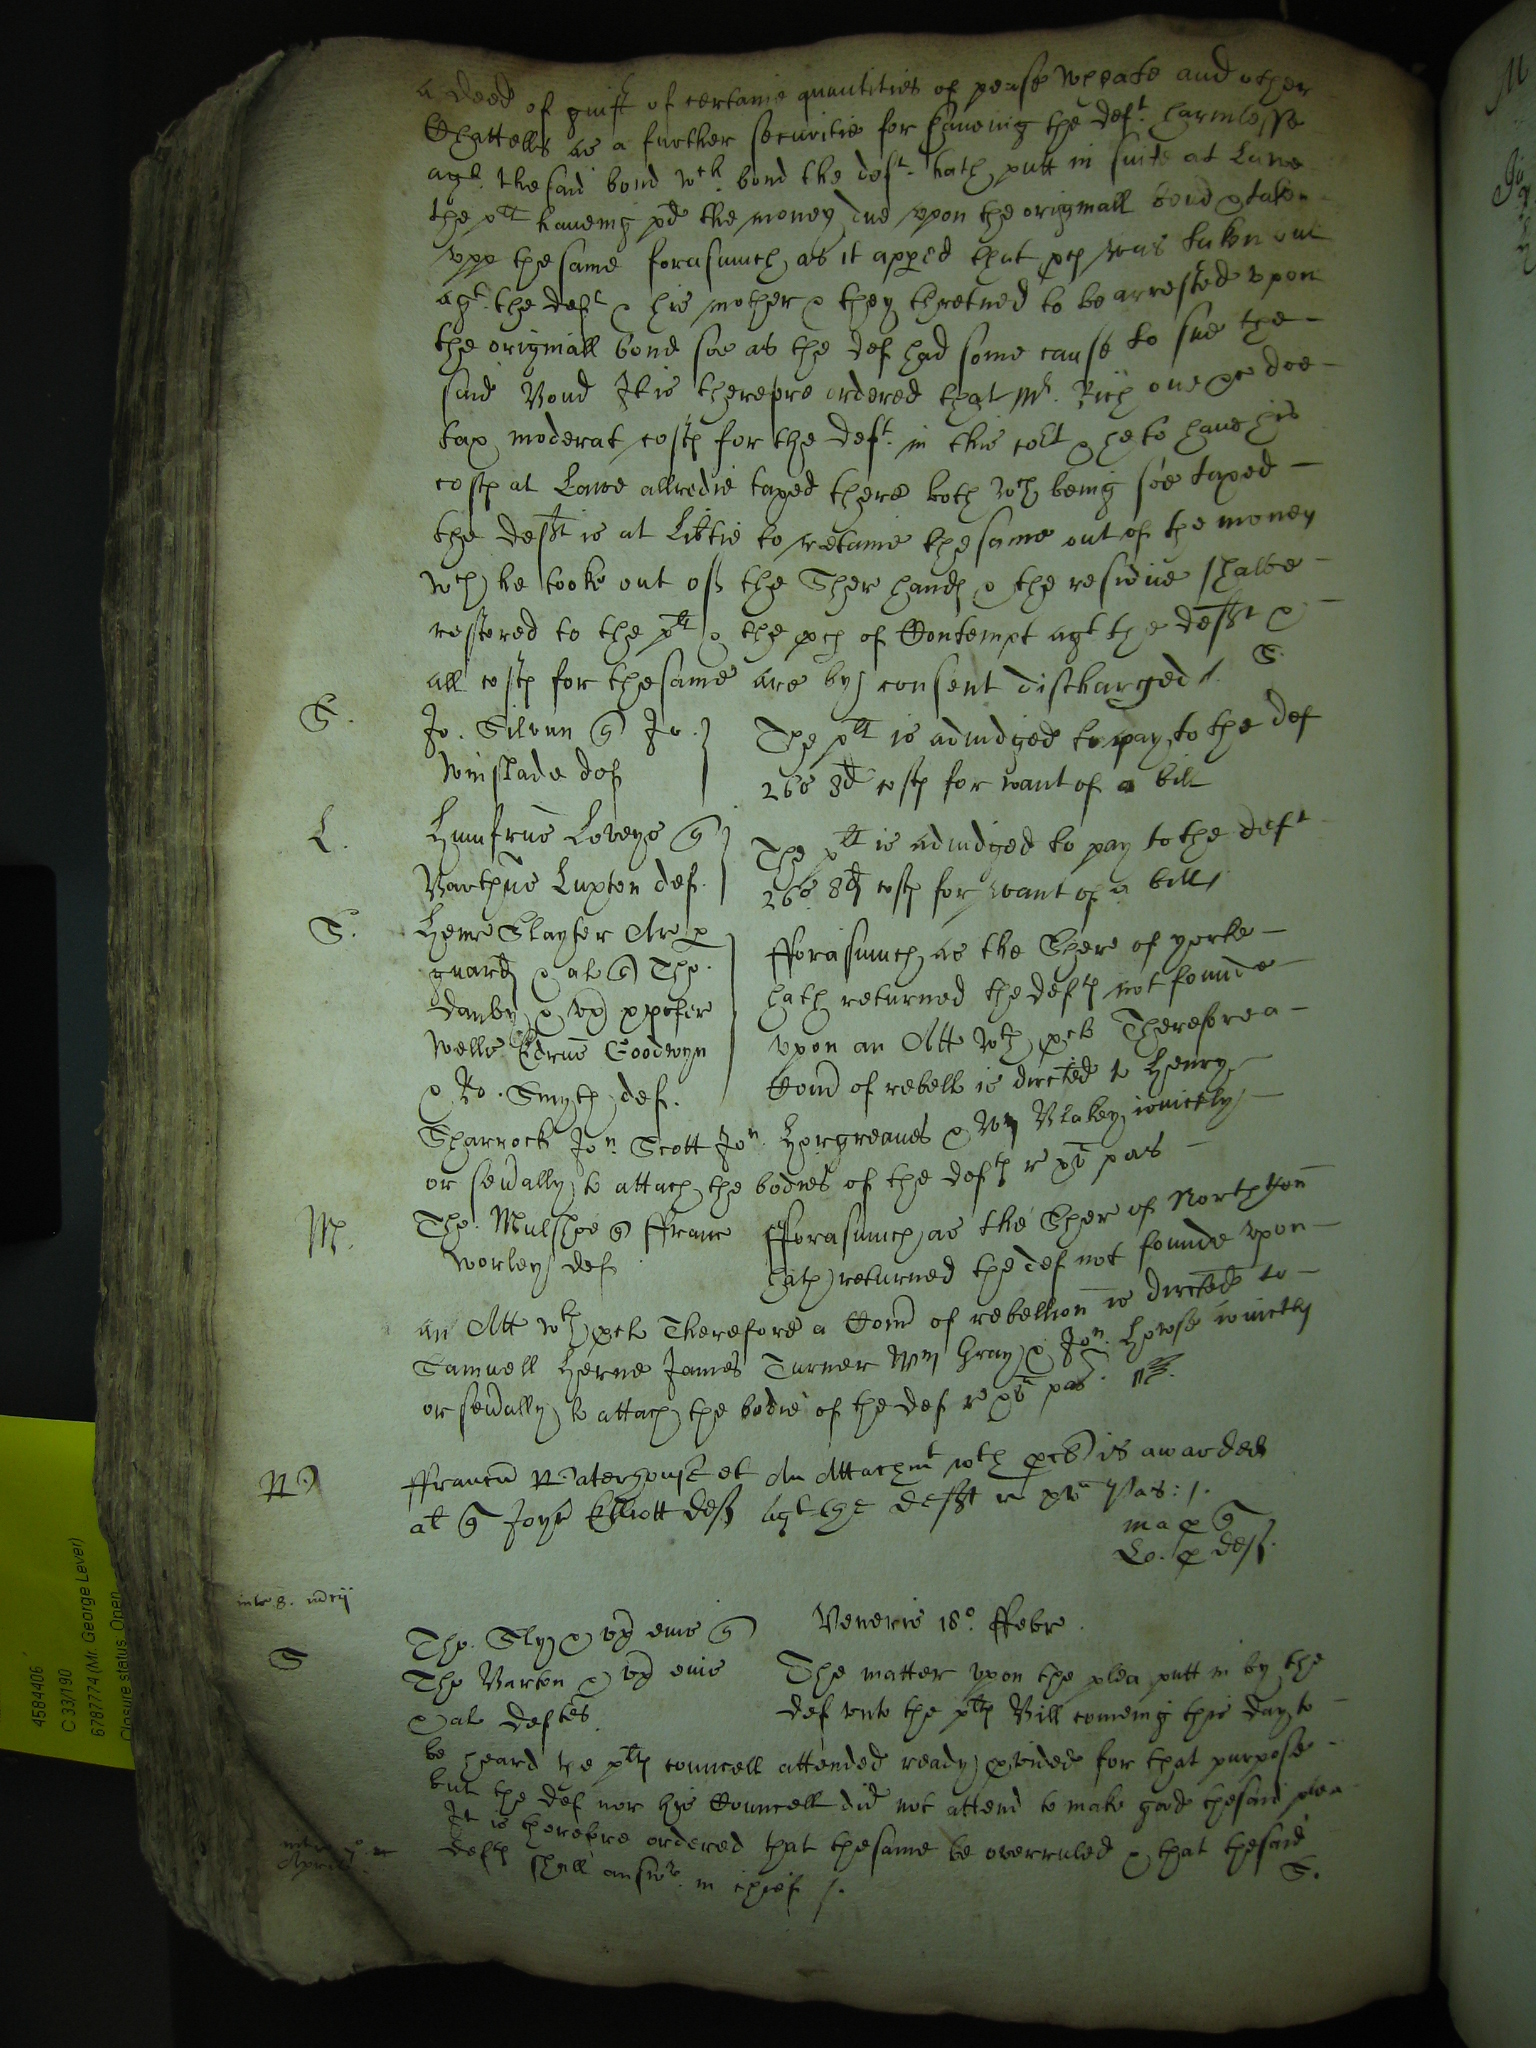 a deed of guift of certaine quantities of pease wheate and other
Chattells as a further securitie for saueing the deft. harmlesse
agt. the said bond wch. bond the deft. hath putt in suite at Lawe
the plt haueing pd the money due vpon the originall bond & taken
vpp the same forasmuch as it appred that pces was taken out
agt. the deft & his mother & they thretned to be arrested vpon
the originall bond soe as the def had some cause to sue the
said Bond It is therefore ordered that Mr. Rich one &c doe
tax moderat costs for the deft. in this cort & he to haue his
costs at Lawe allredie taxed there both wch being soe taxed
the defft is at Libtie to retaine the same out of the money
wch he tooke out off the Sher hands & the residue shalbe
restored to the plt & the pces of Contempt agt the defft &
all costs for the same are by consent discharged /. S.
S.
Jo. Silvun q Jo.
Winslade def
The plt is adiudged to pay to the def
26s 8d costs for want of a bill
L.
Humfrus Loveys q
Barthus Luxton def.
The plt is adiudged to pay to the deft
26s. 8d costs for want of a bill /
S.
Henr Slayter Ar p
guard & al q Tho.
Danby & vx
Wells Edrus Goodwyn
& Ro. Smyth def.
fforasmuch as the Shere of yorke
hath returned the defts not founde
vpon an Att wth pcls Therefore a
Com of rebell is directed to Henry
Sharrock Jon. Scott Jon. Hargreaues & Wm Blakey ioinctly
or seually to attach the bodies of the defts r xv pas
M.
Tho. Mulshoe q ffranc
Worley def
fforasmuch as the Sher of Northton
hath returned the def not founde vpon
an Att wth pcls Therefore a Com of rebellion is directed to
Samuell Herne James Turner Wm Gray & Jon. Howse ioinctly
or seually to attach the bodie of the def r xv pas.
W
ffrancus Waterhouse et
al q Joyce Elliott deff
An Attachmt wth pcls is awarded
agt the defft r xv Pas: /.
ma p q
Lo. p deff.
Veneris 18o. ffebr.
S
Tho. Sly & vx eius q
Tho Barton & vx eius
& al deftes.
The matter vpon the plea putt in by the
def vnto the plts Bill comeing this day to
be heard the plts councell attended ready pvided for that purpose
but the def nor his Councell did not attend to make good the said plea
It is therefore ordered that the same be overruled & that the said
defts shall answr. in chief /. S.
April
4584406
C 33/190
6787774 (Mr. George Lever)
Closure status: Open